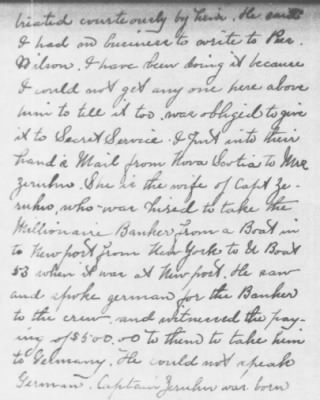 treated courteously by him. He said
I had no business to write to Pres.
Wilson. I have been doing it because
I could not get any one here above
him to tell it too. was obliged to give
it to Secret Service. I put into their
hand a Mail from Nova Scotia to Mrs
Zeruhns. She is the wife of Capt Ze-
ruhns, who was hired to take the
Millionaire Banker from a Boat in
to Newport from New York to U Boat
53 when it was at Newport. He saw
and spoke german for the Banker
to the crew and witnessed the pay-
ing of $500.00 to them to take him
to Germany. He could not speak
German. Captain Zeruhn was born